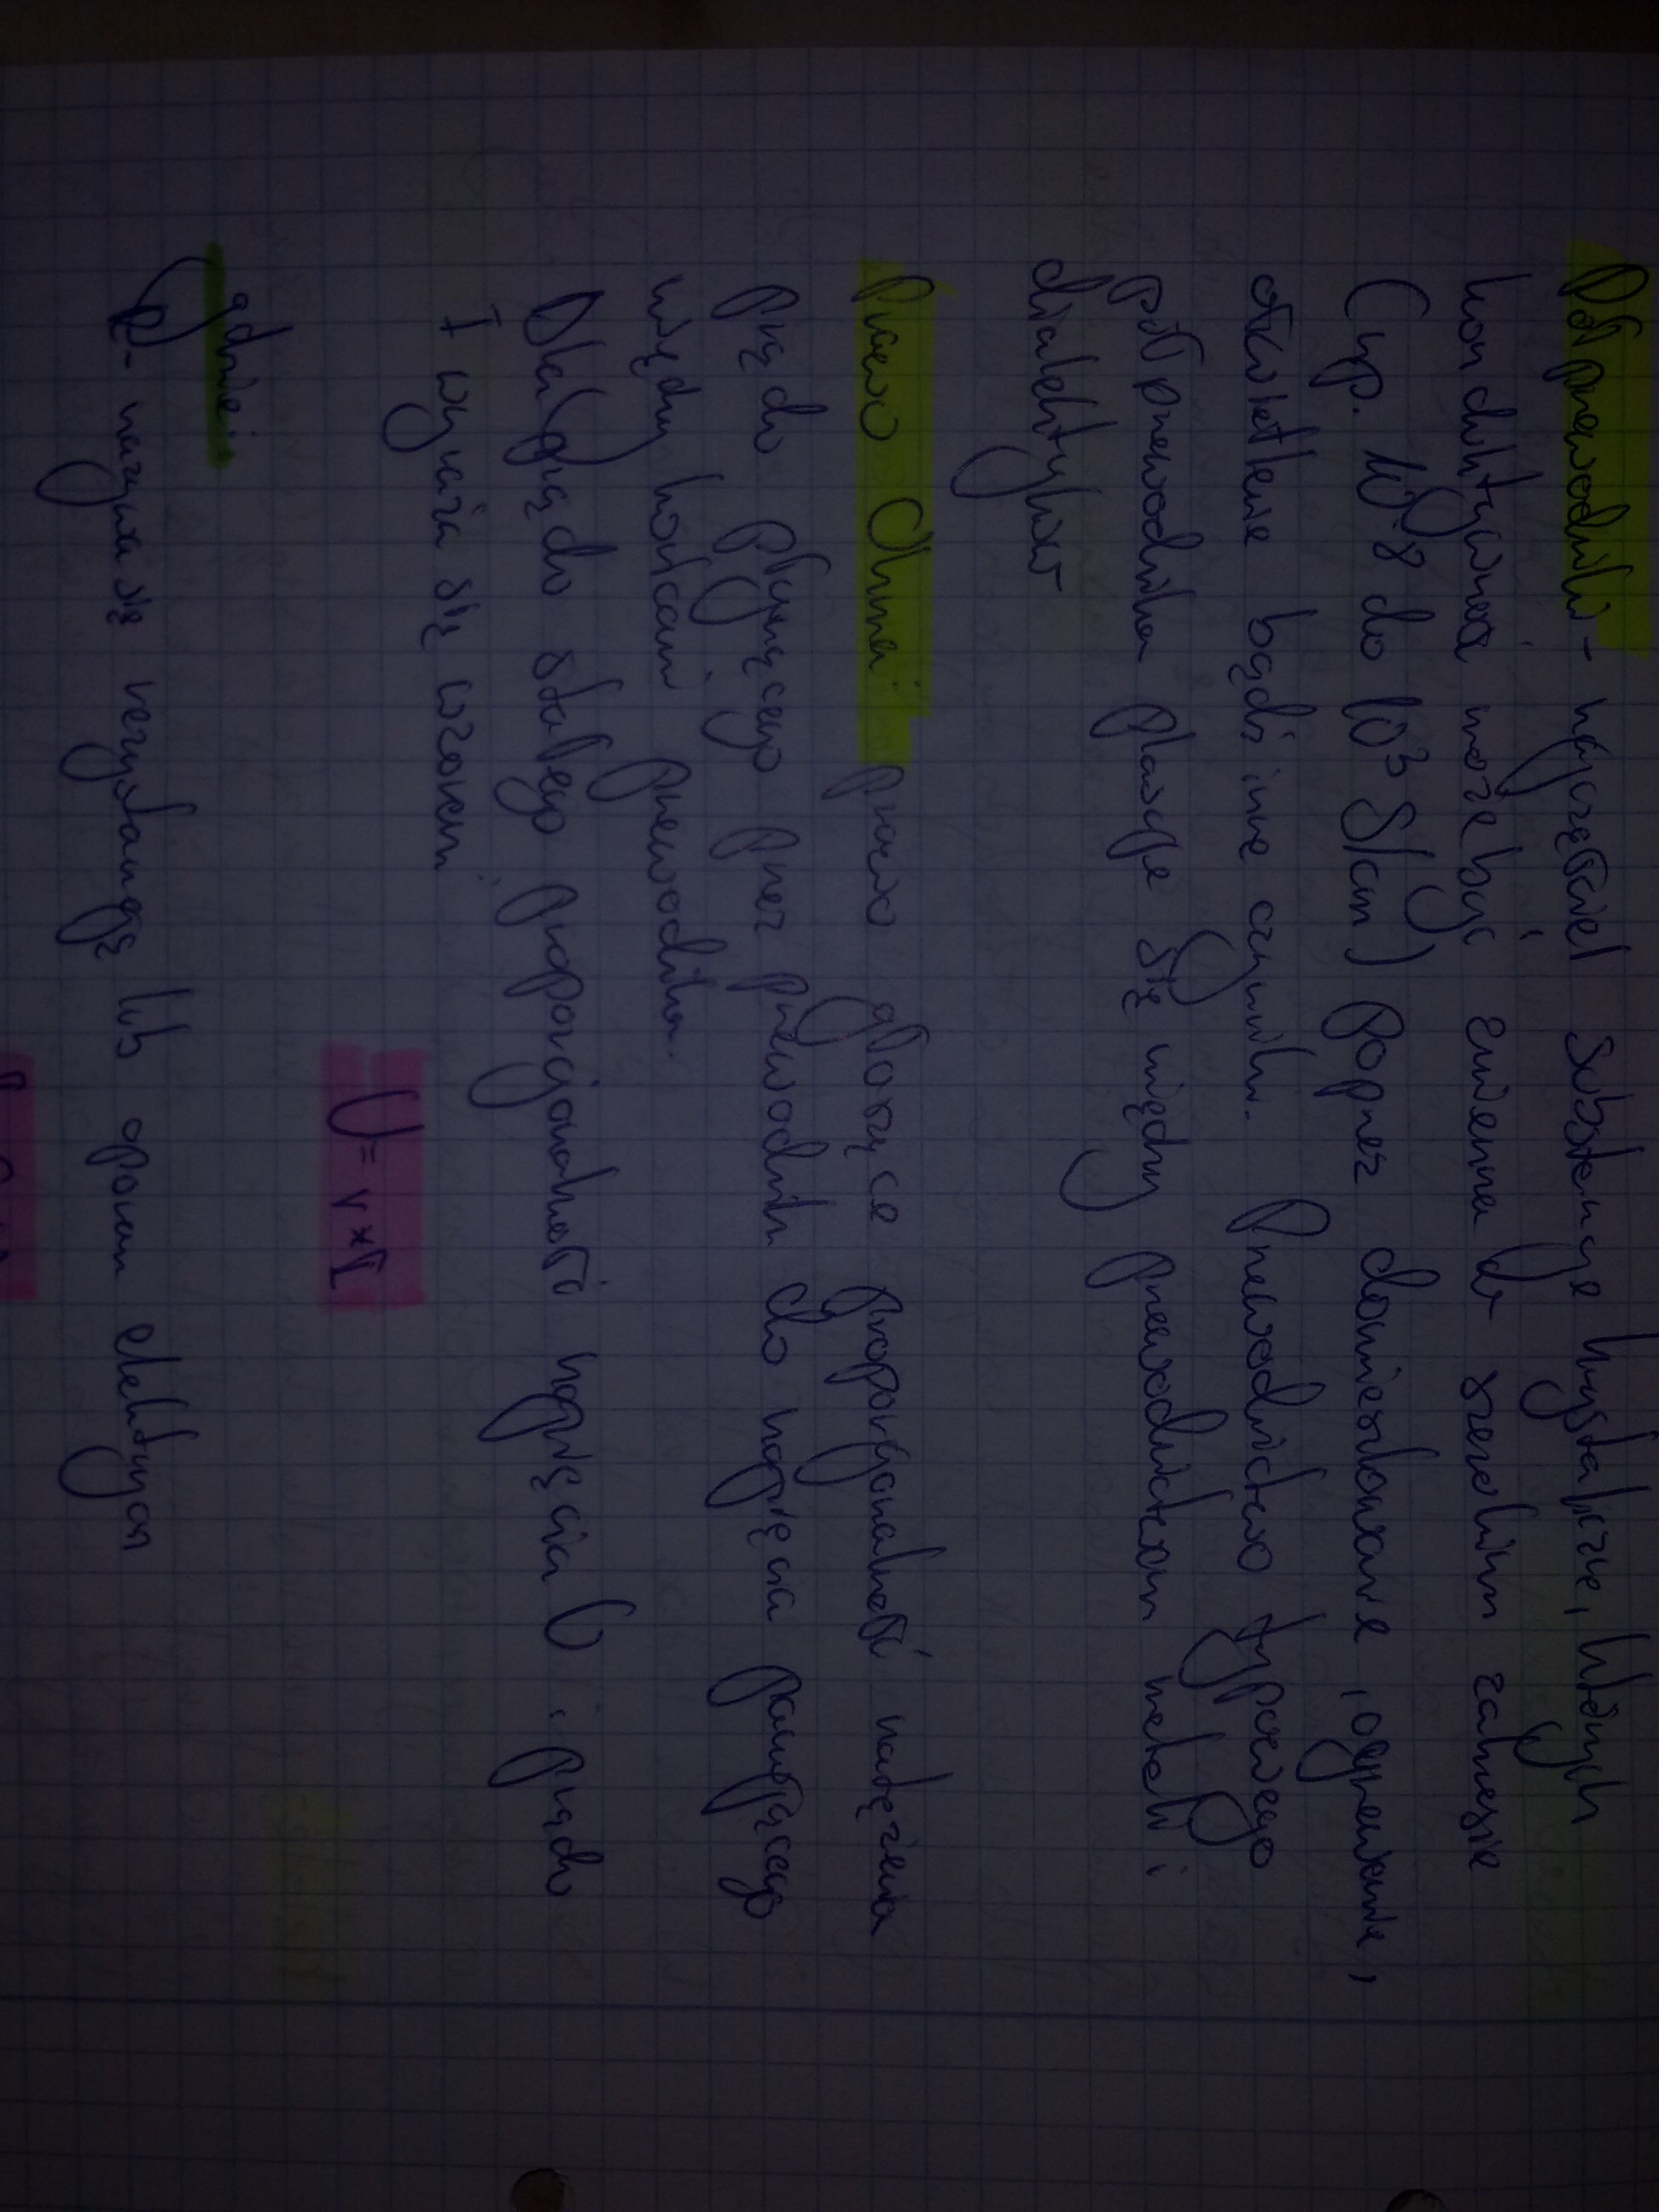 Półprzewodniki - najczęściej substancje krystaliczne, których
konduktywność może być zmieniana w szerokim zakresie
(np. 10^-8 do 10^3 S/cm) poprzez domieszkowanie, ogrzewanie,
oświetlenie bądź inne czynniki. Przewodnictwo typowego
półprzewodnika plasuje się między przewodnictwem metali i
dielektryków
Prawo Ohma: prawo głoszące proporcjonalność natężenia
prądu płynącego przez przewodnik do napięcia panującego
między końcami przewodnika.
Dla prądu stałego proporcjonalność napięcia U i prądu
I wyraża się wzorem:
U = r * I
gdzie:
R - nazywa się rezystancją lub oporem elektrycz